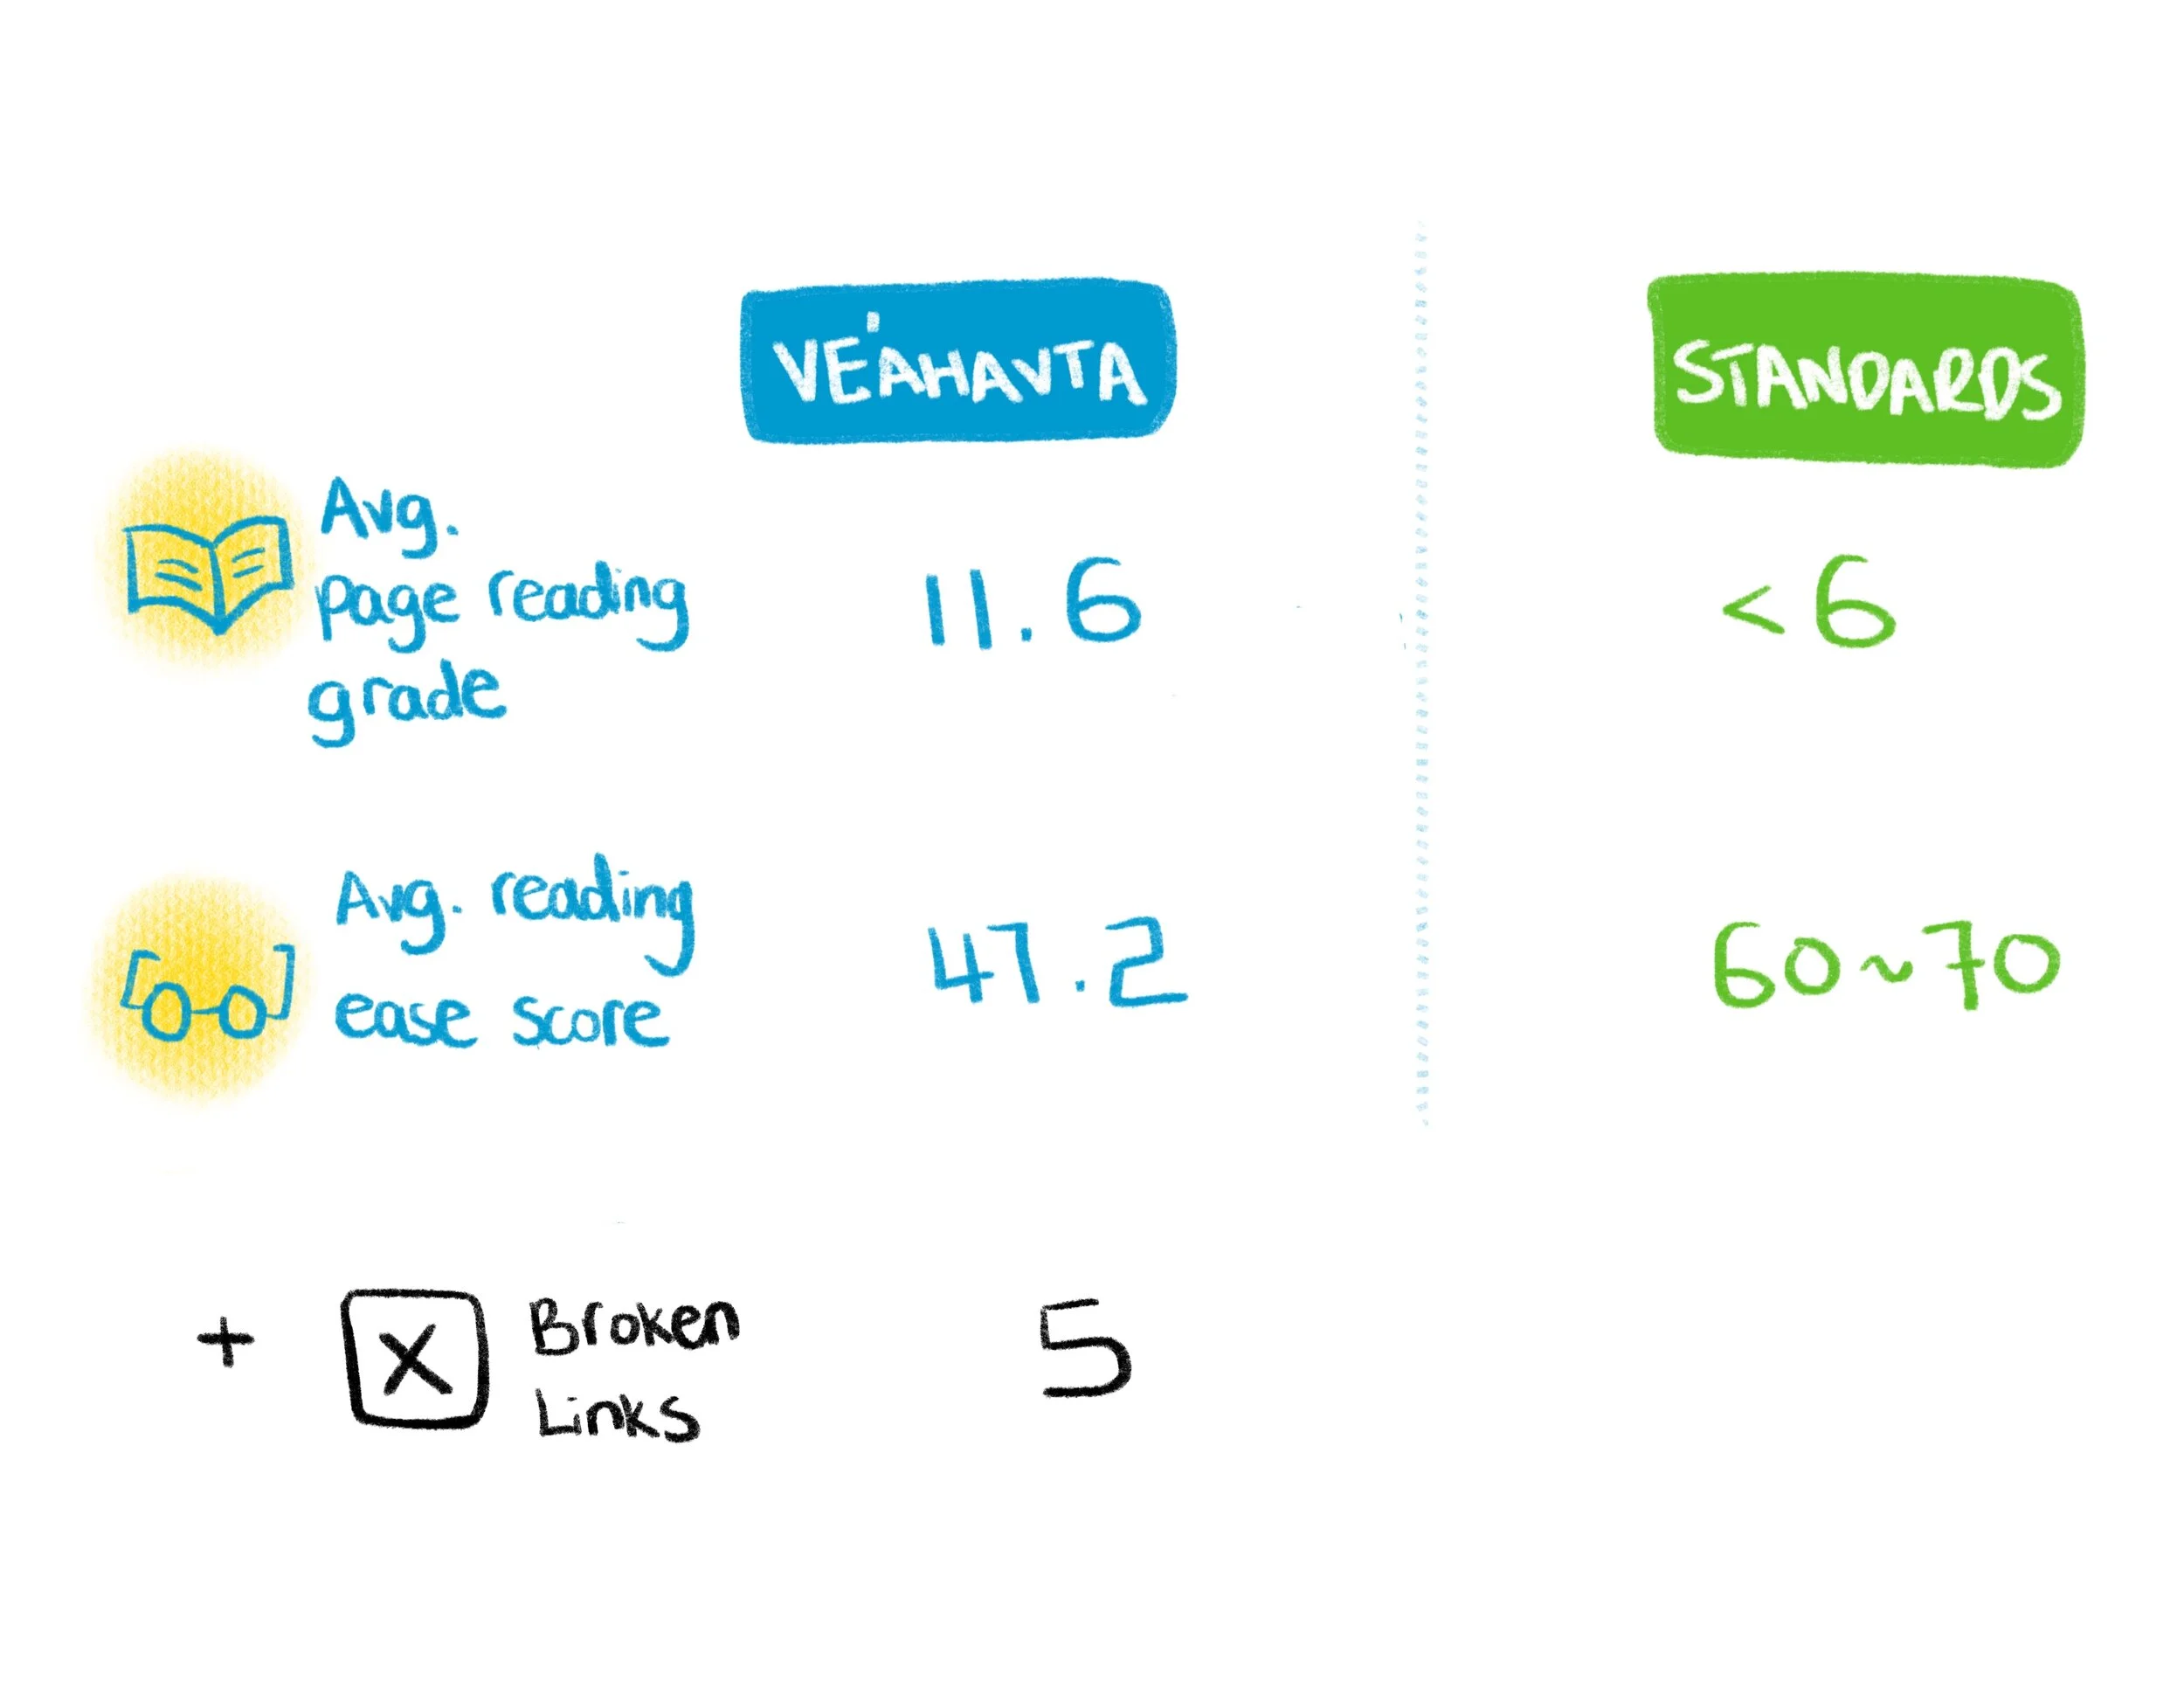 VE'AHAVTA
STANDARDS
Avg.
page reading
grade
11.6
<6
Avg. reading
ease score
47.2
60~70
+
X
Broken
Links
5